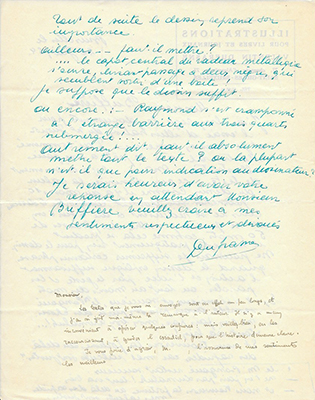 Tout de suite le dessin reprend son
importance.
Ailleurs -- faut il mettre!
.... le capot central du radeau métallique
s'ouvre, livrant passage à deux nègres, qui
semblent sortis d'une boîte!
je suppose que le dessin suffit.
ou encore. :- Raymond s'est cramponné
à l'étrange barrière aux trois quarts
submergée!...
Autrement dit faut il absolument
mettre tout le texte? ou la plupart
n'est il que pour indication au dessinateur?
Je serais heureux d'avoir votre
réponse en attendant Monsieur
Buffière veuillez croire à mes
sentiments respectueux et dévoués
Monsieur,
Le texte que je vous ai envoyé est en effet un peu long, et
j'en ai fait moi-même la remarque à l'auteur. Il n'y a
à quelques
pour que l'histoire demeure claire.
Je vous prie d'agréer, M. l'assurance de mes sentiments
les meilleurs